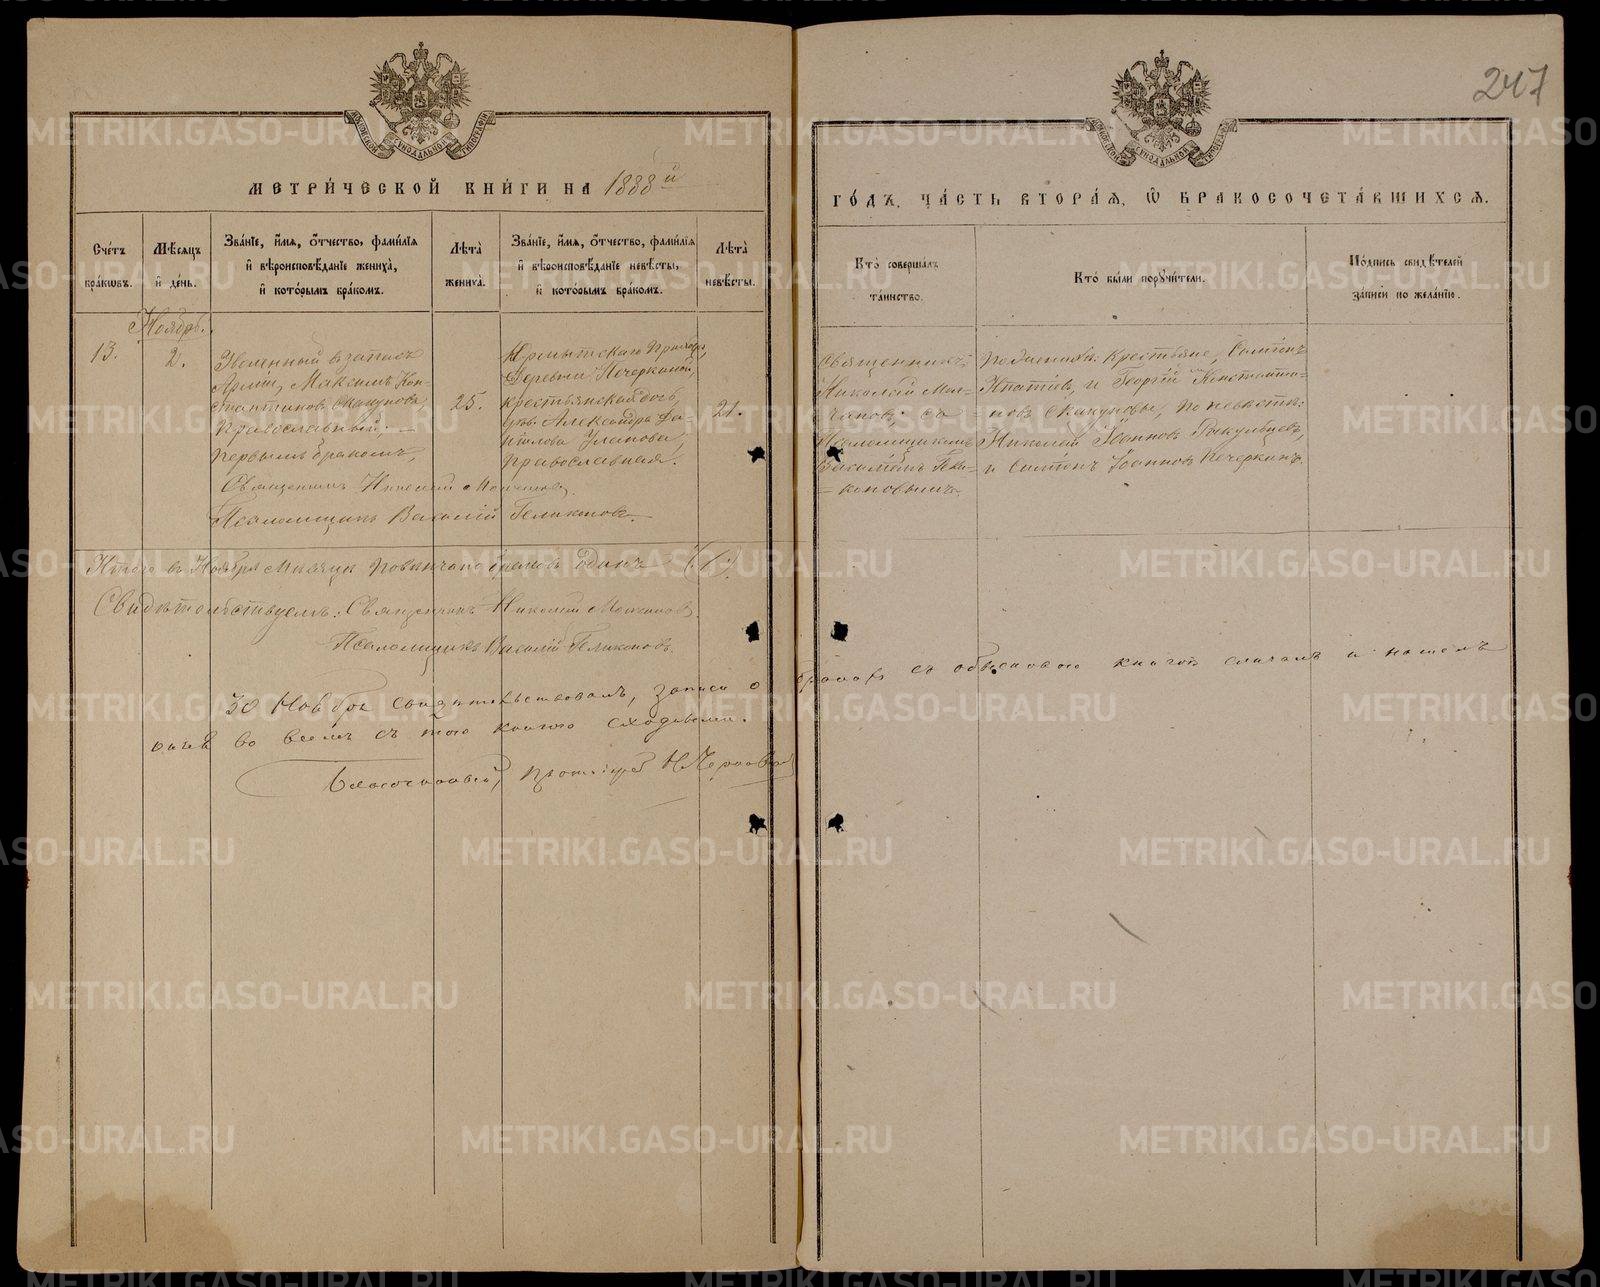 247
МЕТРИ́ЧЕСКОЙ КНИ́ГИ НА 1888й
ГО́ДЪ, ЧА́СТЬ ВТОРА́Я, Ѡ БРАКОСОЧЕТА́ВШИХСЯ.
Сче́тъ бра́кωвъ.
Мѣ́сяцъ и҆ де́нь.
Зва́нїе, и҆́мя, ѻ҆́тчество, фами́лїя и҆ вѣроисповѣ́данїе жениха̀, и҆ кото́рымъ бра́комъ.
Лѣ́та жениха̀.
Зва́нїе, и҆́мя, ѻ҆́тчество, фами́лїя и҆ вѣроисповѣ́данїе невѣ́сты, и҆ кото́рымъ бра́комъ.
Лѣ́та невѣ́сты.
Кто̀ соверша́лъ та́инство.
Кто̀ бы́ли порꙋчи́тели.
По́дпись свидѣ́телей за́писи по жела́нїю.
Ноябрь.
13.
2.
Уволенный въ запасъ
Арміи, Максимъ Кон-
стантиновъ Скакуновъ,
православный,
первымъ бракомъ,
25.
деревни Печеркиной,
крестьянская дочь,
Александра Да-
нилова
православная.
21.
Священникъ
Николай Мол-
чановъ; съ
Псаломщикомъ
Василіемъ Гели-
=коновымъ.
По женихѣ: крестьяне, Семенъ
Ипатовъ, и Георгій Константи-
=новъ Скакуновы, по невѣсты:
Николай Іоанновъ
и Семенъ Іоанновъ Печеркинъ.
Священникъ Николай Молчановъ.
Псаломщикъ Василій Геликоновъ.
Итого въ Ноябрѣ мѣсяцѣ повѣнчано браковъ одинъ (1.)
Свидѣтельствуемъ: Священникъ Николай Молчановъ.
Псаломщикъ Василій Геликоновъ.
30 Ноября свидѣтельствовалъ, записи о бракахъ съ обыскною книгой сличалъ и нашелъ
оныя во всемъ съ тою книгою сходными.
Благочинный, протоіерей
METRIKI.GASO-URAL.RU